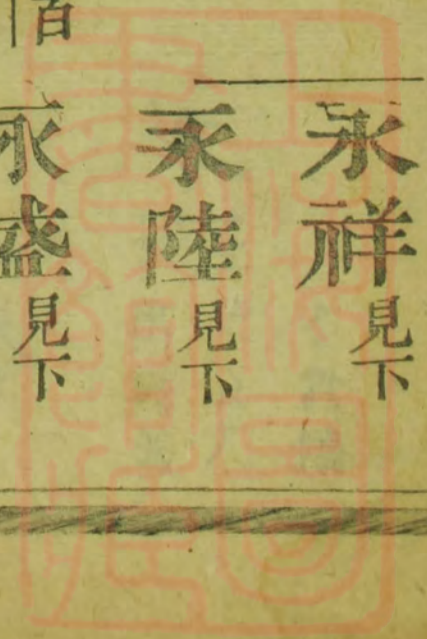 永祥見下
永陸見下
永盛見下